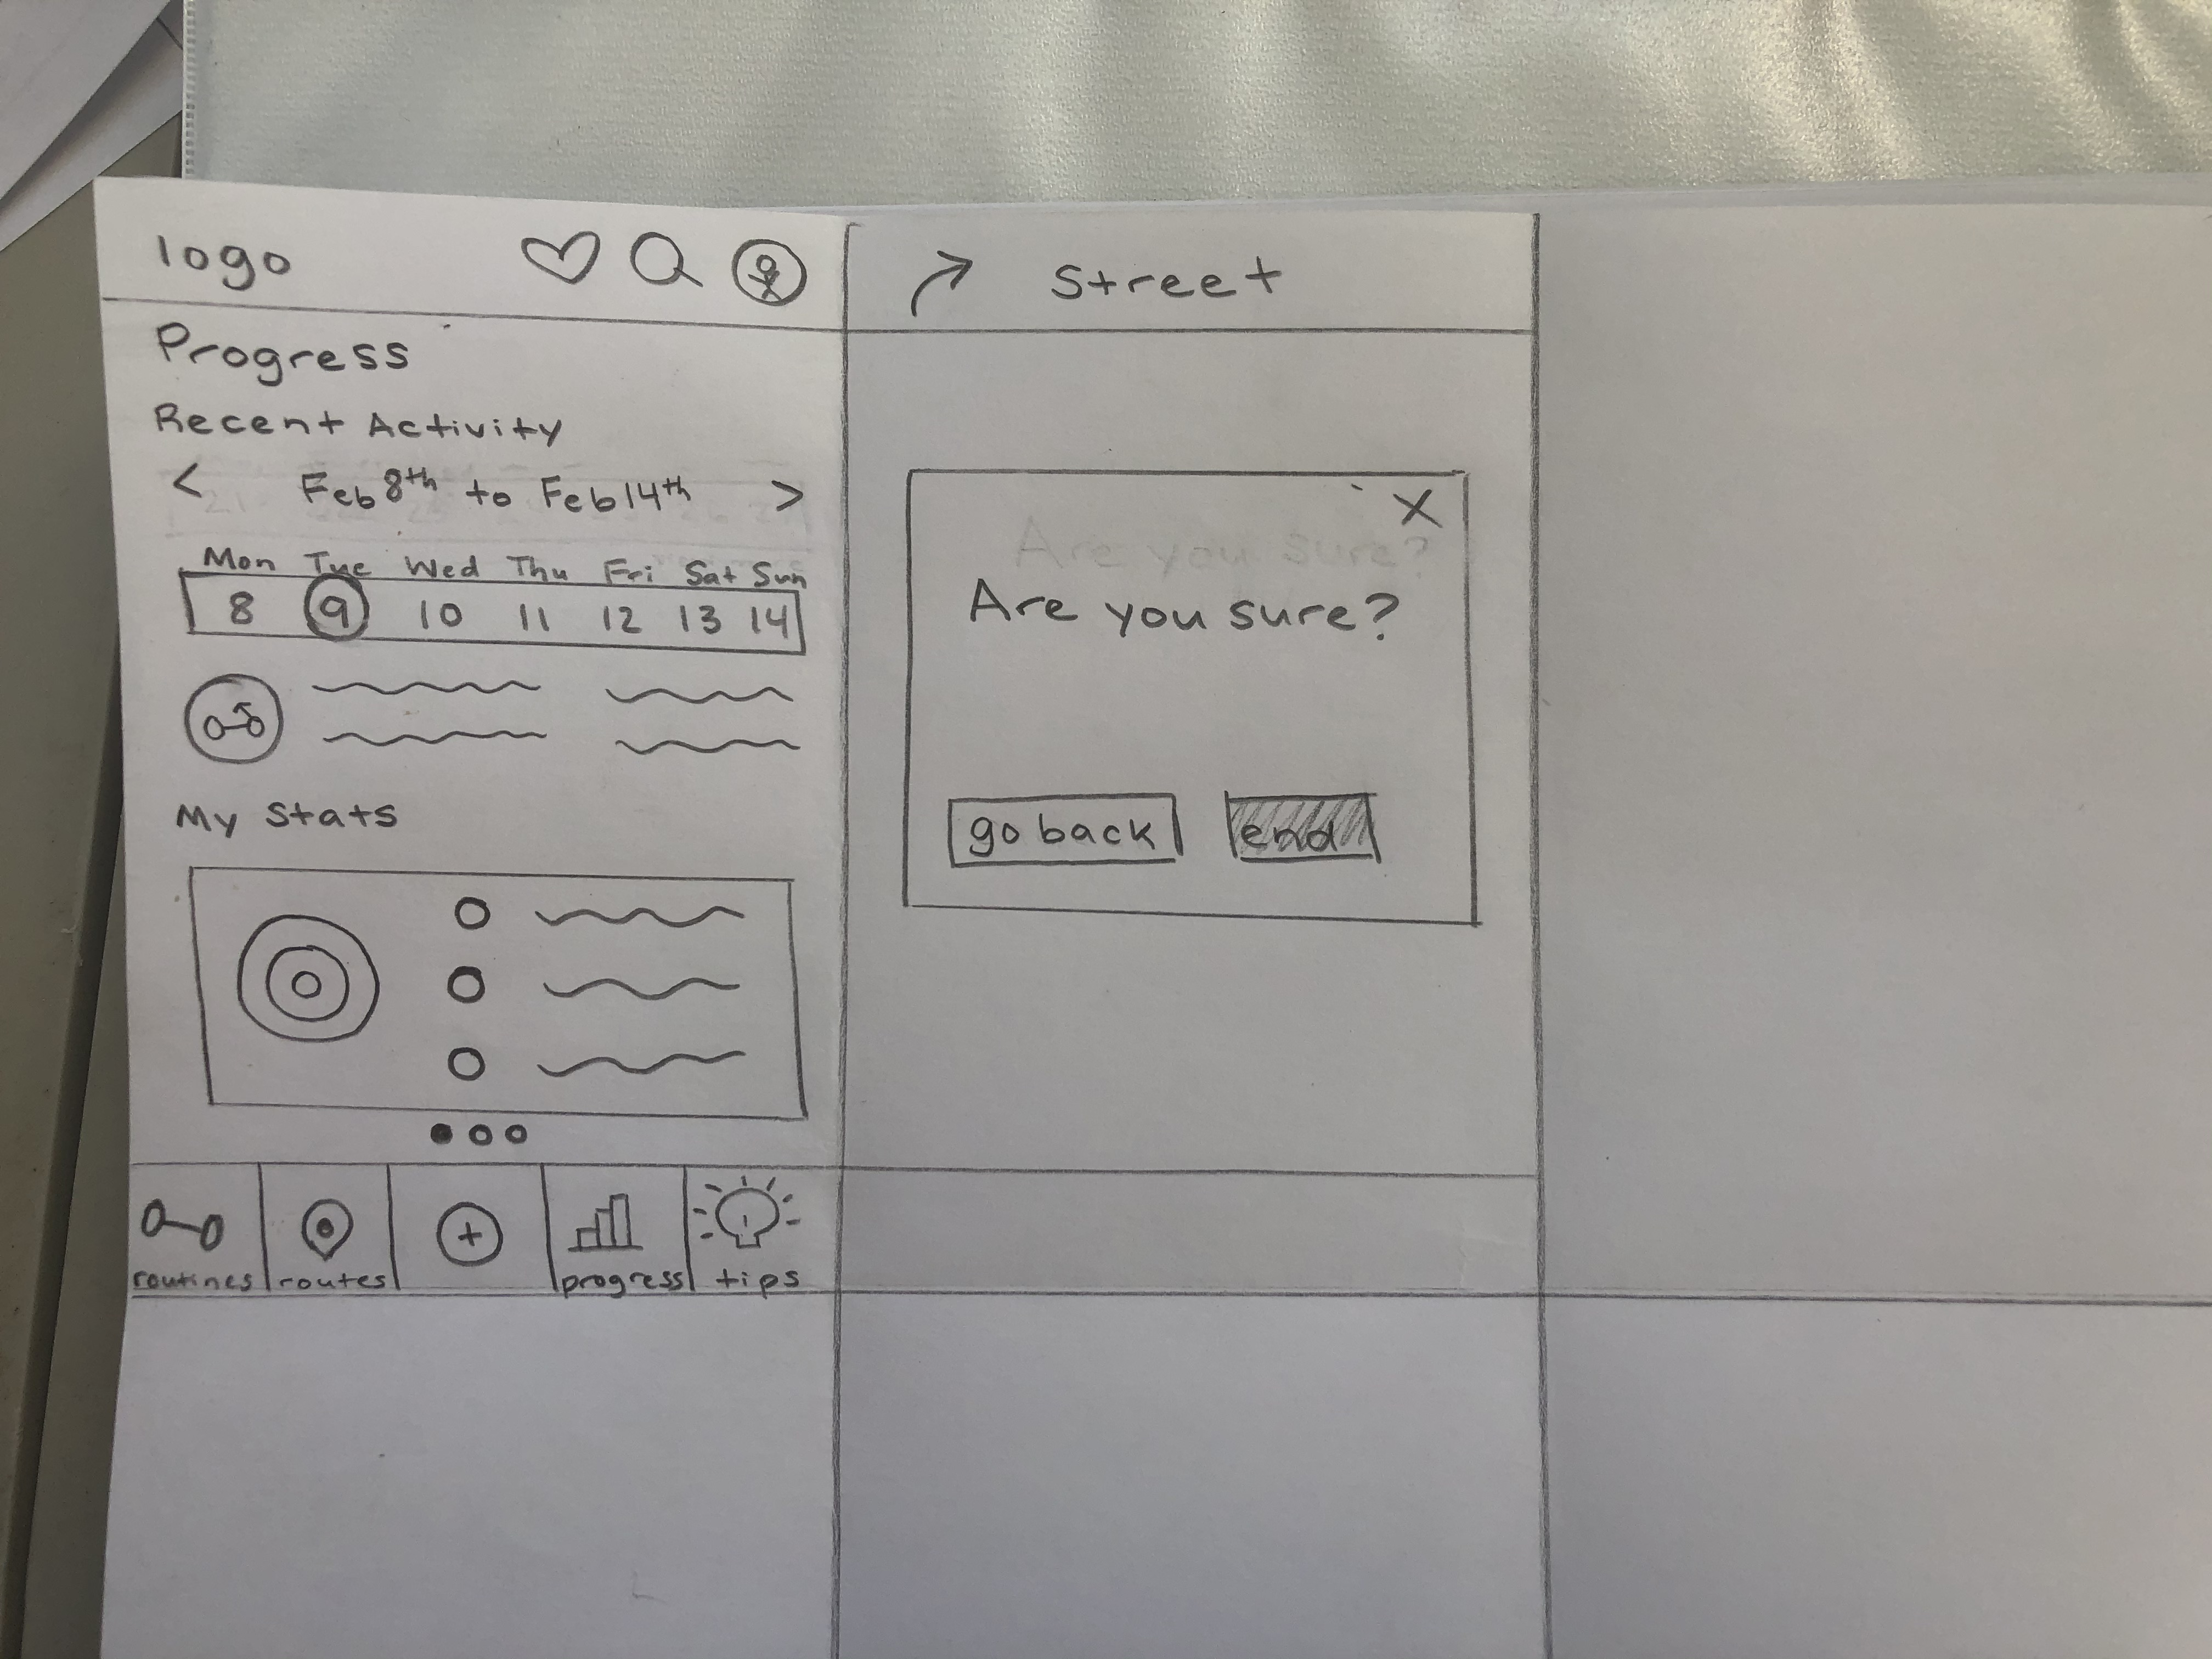 logo
Progress
Recent Activity
< Feb 8th to Feb 14th >
Mon Tue Wed Thu Fri Sat Sun
8 9 10 11 12 13 14
My Stats
routines routes + progress tips
Street
X
Are you sure?
Are you sure?
go back end